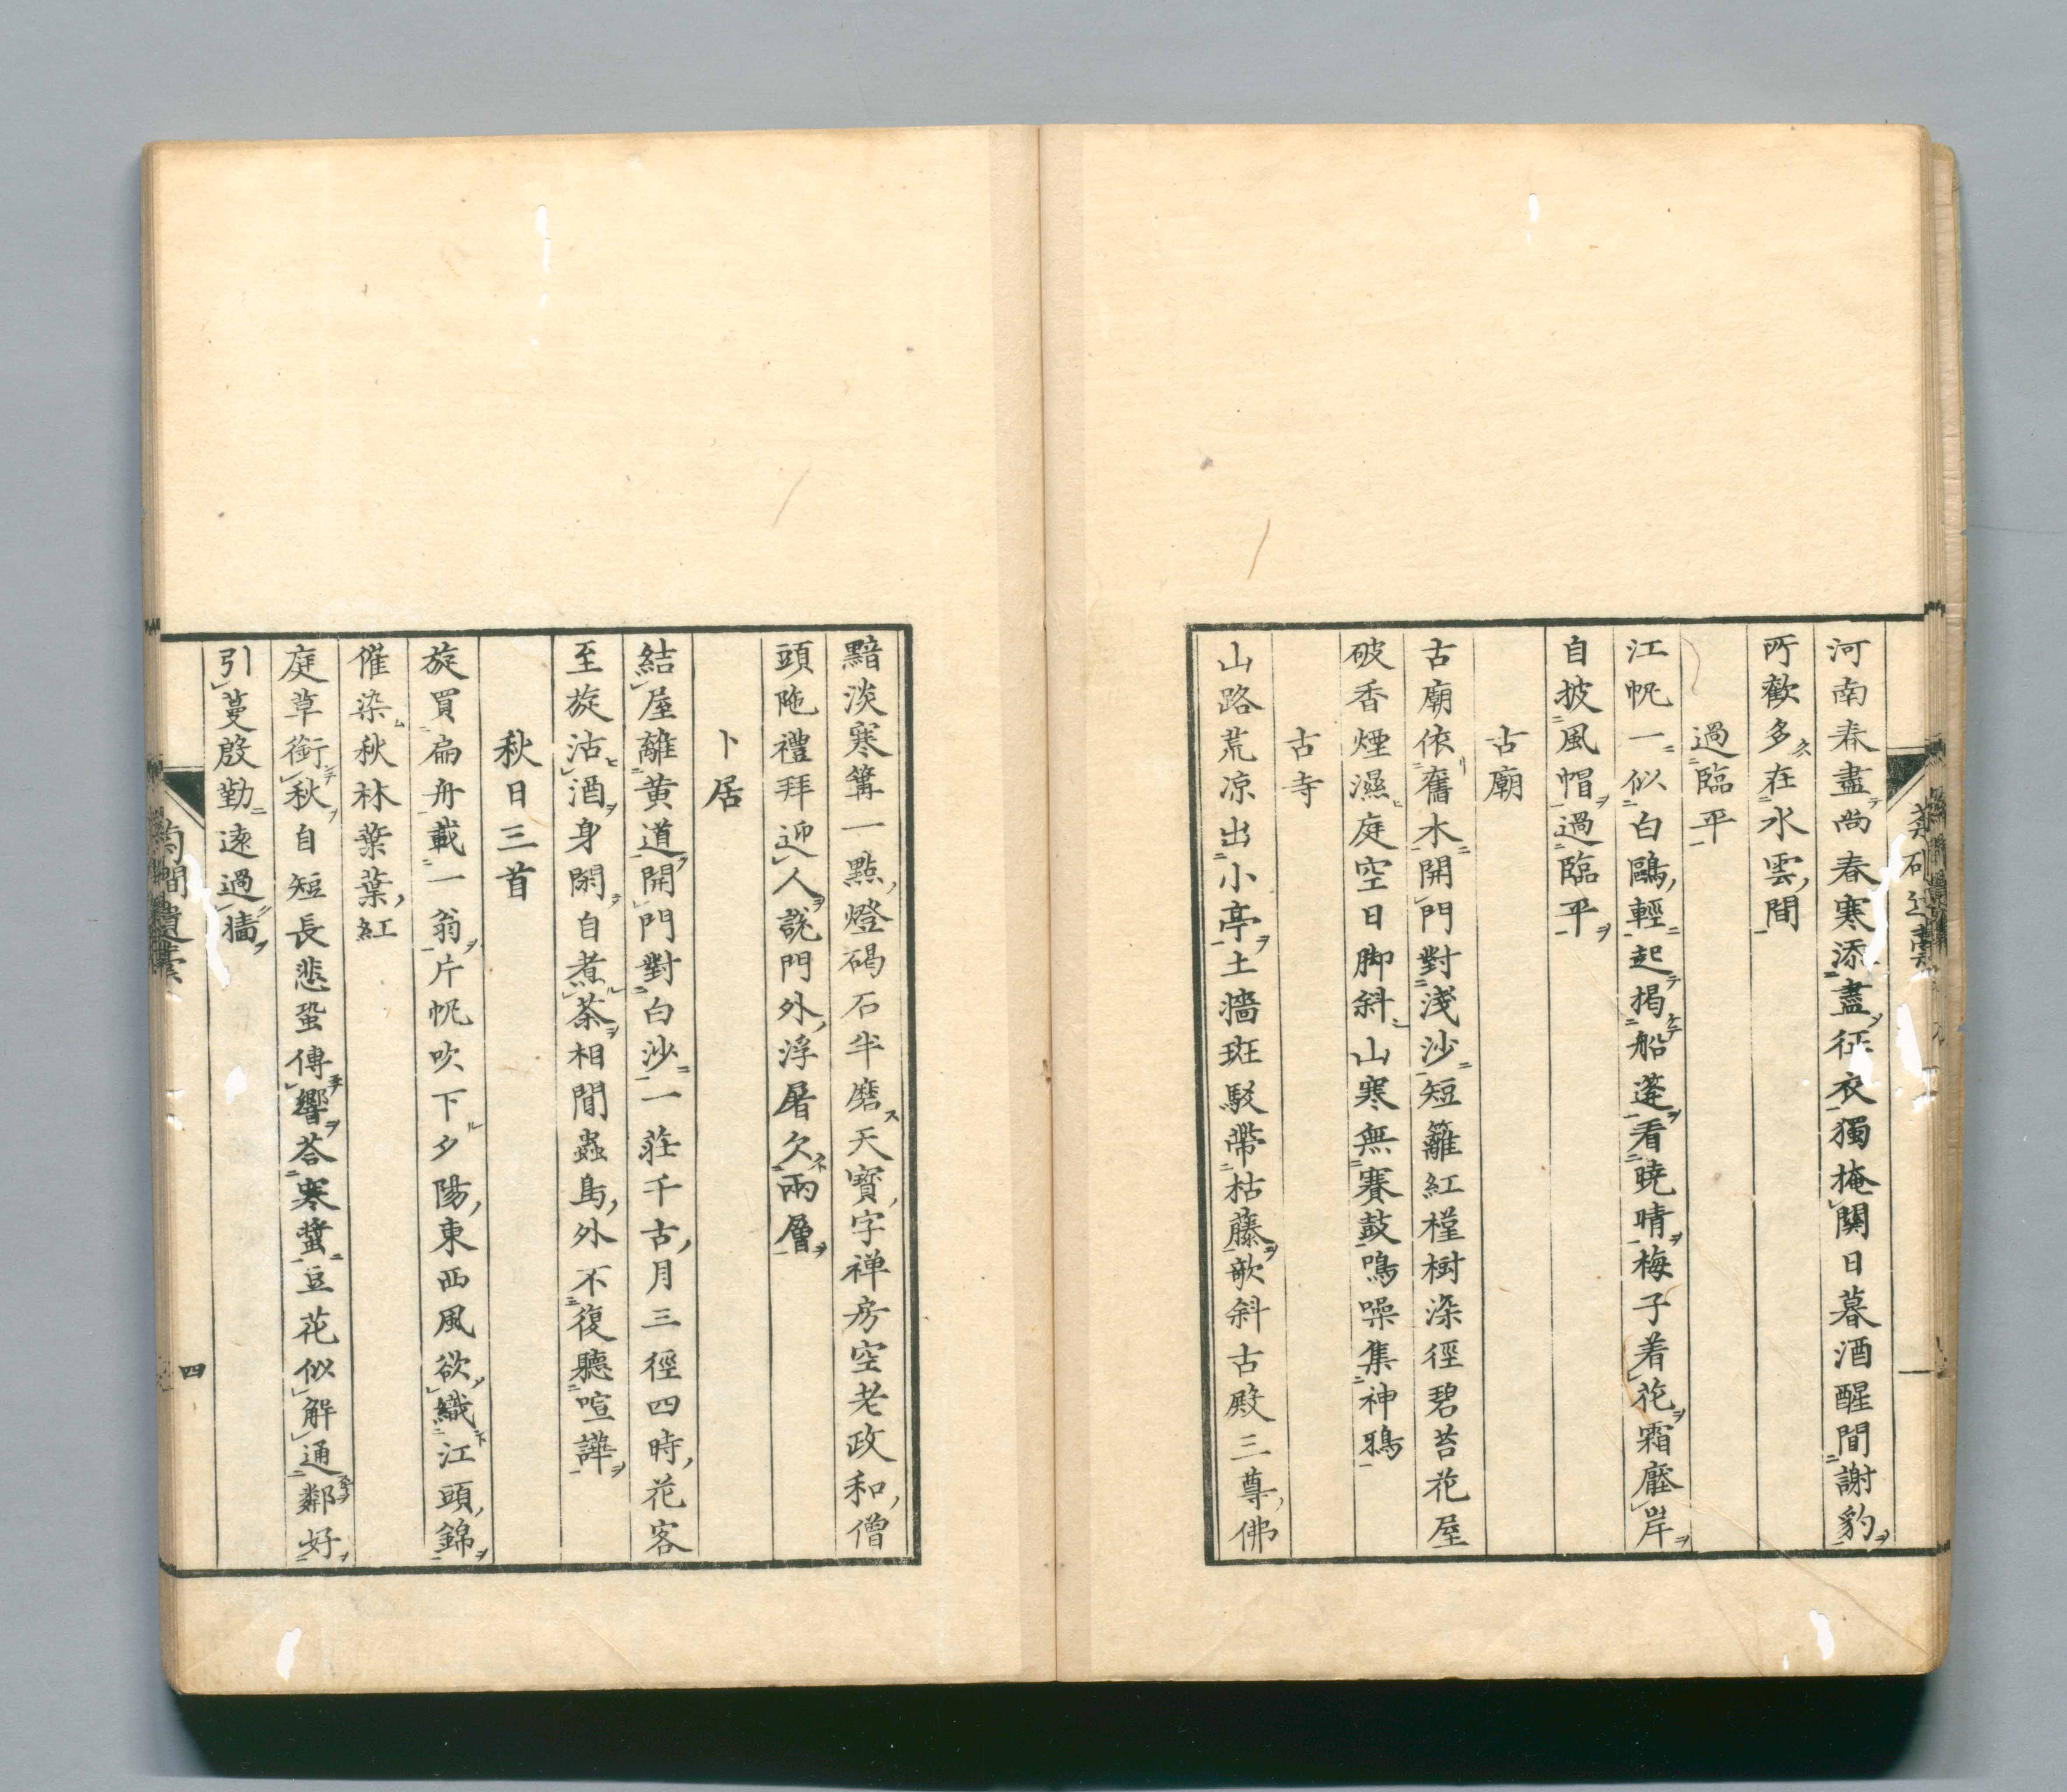 河南春盡尚春寒添盡征衣獨掩關日暮酒醒聞謝豹
所歡多在水雲間
過臨平
江帆一似白鷗輕起揭船蓬看曉晴梅子着花霜壓岸
自披風帽過臨平
古廟
古廟依舊水開門對淺沙短籬紅槿樹深徑碧苔花屋
破香煙濕庭空日脚斜山寒無賽鼓鳴噪集神鴉
古寺
山路荒凉出小亭土牆斑駁帶枯藤欹斜古殿三尊佛
黯淡寒篝一點燈碣石半磨天寶字禅房空老政和僧
頭陁禮拜迎人説門外浮屠欠兩層
卜居
結屋離黄道開門對白沙一莊千古月三徑四時花客
至旋沽酒身閑自煮茶相間蟲鳥外不復聽喧譁
秋日三首
旋買扁舟載一翁片帆吹下夕陽東西風欲織江頭錦
催染秋林葉葉紅
庭草銜秋自短長悲蛩傳響荅寒螿豆花似解通鄰好
引蔓殷勤遠過牆
菊磵遺稾
四